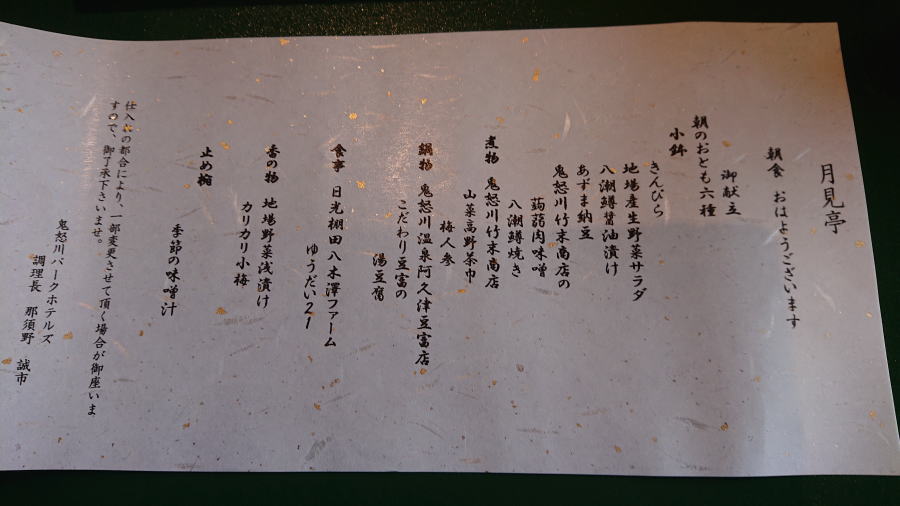 月見亭
朝食　おはようございます
御献立
朝のおとも六種
小鉢
きんぴら
地場産生野菜サラダ
八潮鱒醤油漬け
あずま納豆
鬼怒川竹末商店の
蒟蒻肉味噌
八潮鱒焼き
煮物　鬼怒川竹末商店
山菜高野茶巾
梅人参
鍋物　鬼怒川温泉阿久津豆富店
こだわり豆富の
湯豆富
食事　日光棚田八木澤ファーム
ゆうだい21
香の物　地場野菜浅漬け
カリカリ小梅
止め椀
季節の味噌汁
仕入れの都合により、一部変更させて頂く場合が御座いま
すので、御了承下さいませ。
鬼怒川パークホテルズ
調理長　那須野　誠市